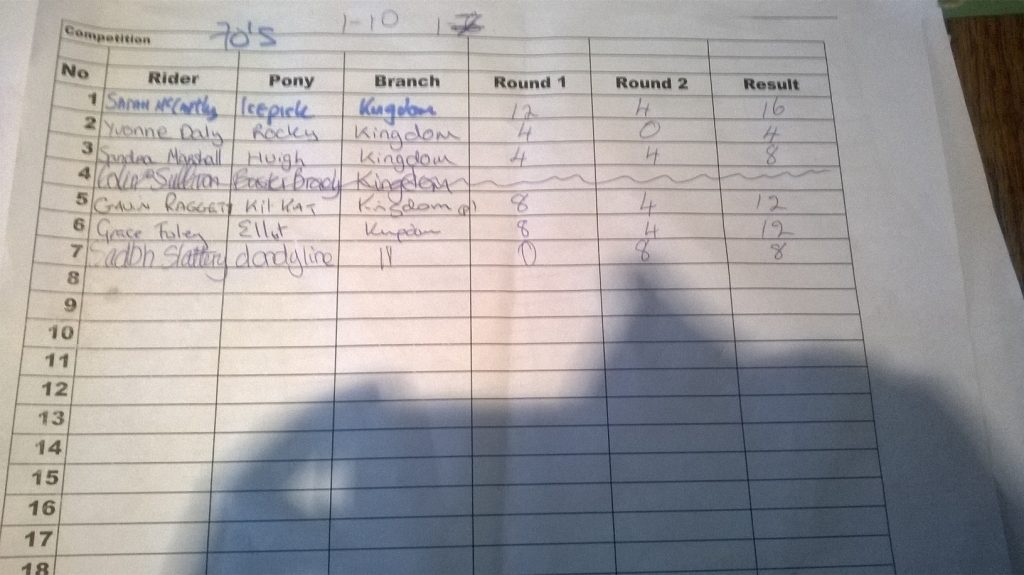 Competition 70's 1-10
No Rider Pony Branch Round 1 Round 2 Result
1 Sarah McCarthy Icepick Kingdom 12 4 16
2 Yvonne Daly Rocky Kingdom 4 0 4
3 Sandra Marshall Huigh Kingdom 4 4 8
4 Colin Sullivan Kingdom
5 GAVIN RAGGETT Kit KAT Kingdom 8 4 12
6 Grace Foley Ellot Kingdom 8 4 12
7 Sadbh Slattery dandyline 11 0 8 8
8
9
10
11
12
13
14
15
16
17
18